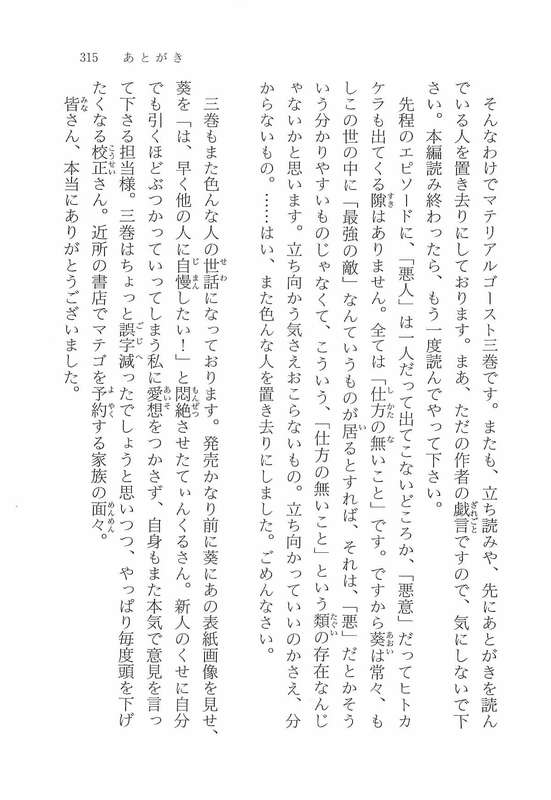 315　あとがき
　そんなわけでマテリアルゴースト三巻です。またも、立ち読みや、先にあとがきを読ん
でいる人を置き去りにしております。まあ、ただの作者の戯言ですので、気にしないで下
さい。本編読み終わったら、もう一度読んでやって下さい。
　先程のエピソードに、「悪人」は一人だって出てこないどころか、「悪意」だってヒトカ
ケラも出てくる隙はありません。全ては「仕方の無いこと」です。ですから葵は常々、も
しこの世の中に「最強の敵」なんていうものが居るとすれば、それは、「悪」だとかそう
いう分かりやすいものじゃなくて、こういう、「仕方の無いこと」という類の存在なんじ
ゃないかと思います。立ち向かう気さえおこらないもの。立ち向かっていいのかさえ、分
からないもの。……はい、また色んな人を置き去りにしました。ごめんなさい。
　三巻もまた色んな人の世話になっております。発売かなり前に葵にあの表紙画像を見せ、
葵を「は、早く他の人に自慢したい！」と悶絶させたてぃんくるさん。新人のくせに自分
でも引くほどぶつかっていってしまう私に愛想をつかさず、自身もまた本気で意見を言っ
て下さる担当様。三巻はちょっと誤字減ったでしょうと思いつつ、やっぱり毎度頭を下げ
たくなる校正さん。近所の書店でマテゴを予約する家族の面々。
　皆さん、本当にありがとうございました。